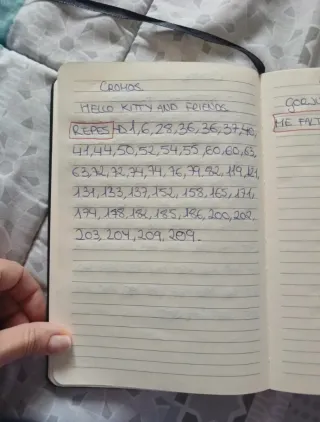 CROMOS
HELLO KITTY AND FRIENDS
REPES → 1, 6, 28, 36, 36, 37, 40,
41, 44, 50, 52, 54, 55, 60, 60, 63,
63, 72, 72, 74, 74, 76, 79, 82, 119, 121,
131, 133, 137, 152, 158, 165, 171,
174, 178, 181, 185, 186, 200, 202,
203, 204, 209, 209.
ME FALT